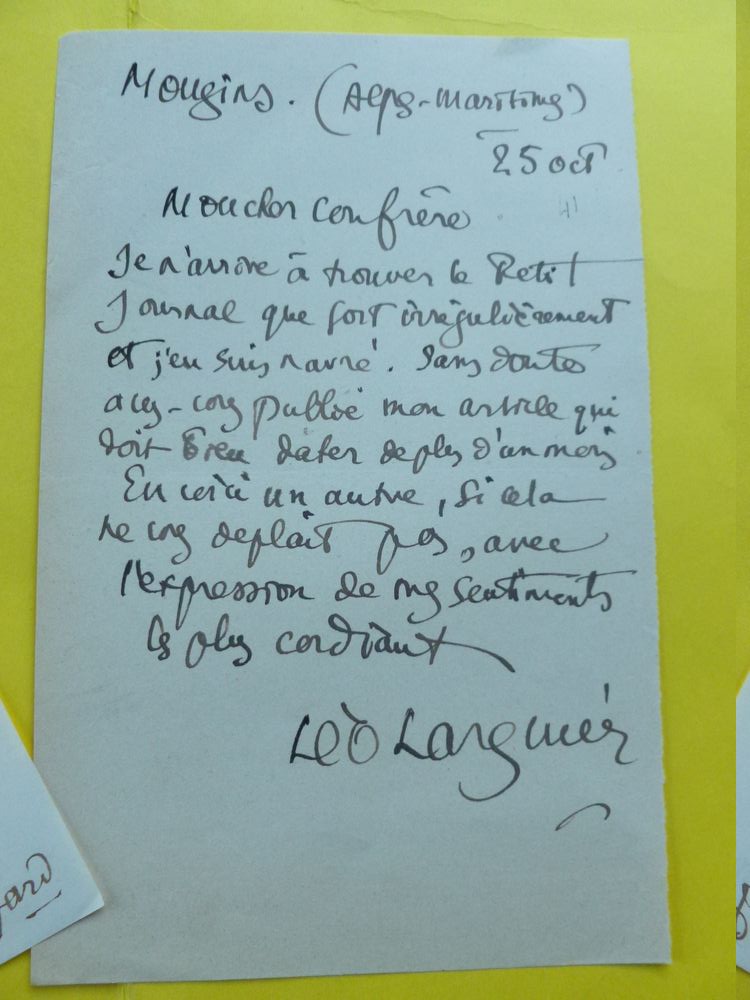 Mougins. (Alpes-Maritimes)
25 oct
41
Mon cher confrère
Je n'arrive à trouver le Petit
Journal que fort irrégulièrement
et j'en suis navré. Sans doute
avez-vous publié mon article qui
doit bien dater de plus d'un mois
En voici un autre, si cela
ne vous deplait pas, avec
l'expression de mes sentiments
les plus cordiaux
Léo Larguier